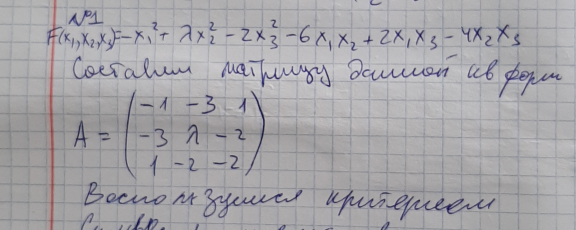 №1
F(x₁,x₂,x₃)=-x₁²+λx₂²-2x₃²-6x₁x₂+2x₁x₃-4x₂x₃
Составим матрицу данной кв форм
A = (-1 -3 1
-3 λ -2
1 -2 -2)
Воспользуемся критерием